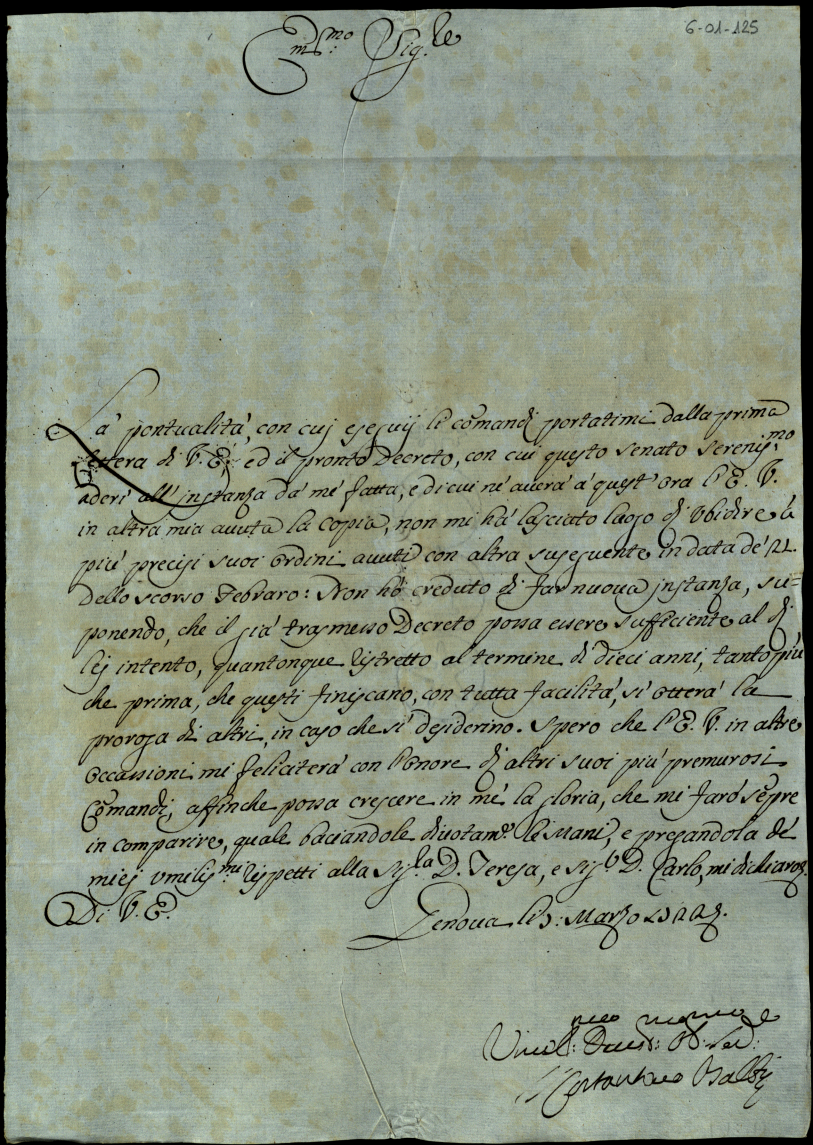 6-01-125
Em.mo Sig.re
La' pontualitá, con cuj esequij li cômandi portatimi dalla prima
lettera di V. E., ed il pronto Decreto, con cui questo senato serenis.mo
aderì all' instanza dá mé fatta, e di cui né averá á quest' ora l' E. V.
in altra mia avuta la Copia, non mi há lasciato luogo di Vbidire á
più precisi suoi Ordini avuti con altra susequente in data dé 21.
dello scorso Febraro: Non hó creduto di far nuova jnstanza, su=
ponendo, che il giá trasmesso Decreto possa essere sufficiente al di
lej intento, quantonque ristretto al termine di dieci anni, tanto più
che prima, che questi finiscano, con tutta facilitá, si otterá la
proroga di altri, in caso che si desiderino. Spero che l' E. V. in altre
Occassioni mi feliciterá con l'onore di altri suoi più premurosi
Cômandi, affinche possa crescere in mé la gloria, che mi faró sêpre
in comparire, quale baciandole divotam.e le Mani, e pregandola dé
miej vmilis.mi rispetti alla Sig.la D. Teresa, e sig.r D. Carlo, mi dichiaro
Di V. E.
Genova li 3: Marzo
Costantino Balbi